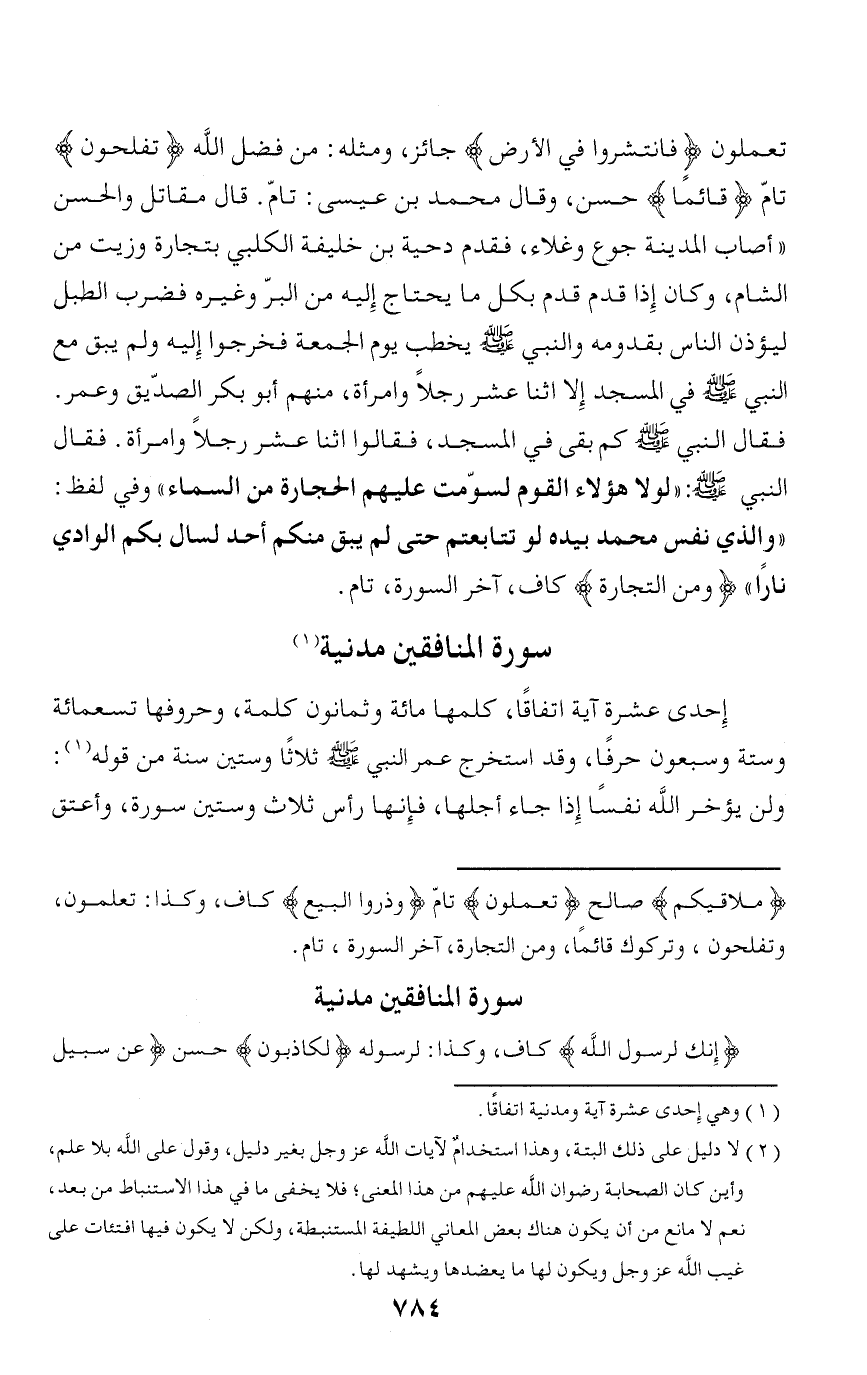 تعملون ﴿فانتشروا في الأرض﴾ جائز، ومثله: من فضل اللَّه ﴿تفلحون﴾
تامّ ﴿قائمًا﴾ حسن، وقال محمد بن عيسى: تامّ. قال مقاتل والحسن
«أصاب المدينة جوع وغلاء، فقدم دحية بن خليفة الكلبي بتجارة وزيت من
الشام، وكان إذا قدم قدم بكل ما يحتاج إليه من البرّ وغيره فضرب الطبل
ليؤذن الناس بقدومه والنبي ﷺ يخطب يوم الجمعة فخرجوا إليه ولم يبق مع
النبي ﷺ في المسجد إلا اثنا عشر رجلاً وامرأة، منهم أبو بكر الصدّيق وعمر.
فقال النبي ﷺ كم بقى في المسجد، فقالوا اثنا عشر رجلاً وامرأة. فقال
النبي ﷺ: «لولا هؤلاء القوم لسوّمت عليهم الحجارة من السماء» وفي لفظ:
«والذي نفس محمد بيده لو تتابعتم حتى لم يبق منكم أحد لسال بكم الوادي
نارًا» ﴿ومن التجارة﴾ كاف، آخر السورة، تام.
سورة المنافقين مدنية(١)
إحدى عشرة آية اتفاقًا، كلمها مائة وثمانون كلمة، وحروفها تسعمائة
وستة وسبعون حرفًا، وقد استخرج عمر النبي ﷺ ثلاثًا وستين سنة من قوله(١):
ولن يؤخر اللَّه نفسًا إذا جاء أجلها، فإنها رأس ثلاث وستين سورة، وأعتق
﴿ملاقيكم﴾ صالح ﴿تعملون﴾ تامّ ﴿وذروا البيع﴾ كاف، وكذا: تعلمون،
وتفلحون ، وتركوك قائمًا، ومن التجارة، آخر السورة ، تام.
سورة المنافقين مدنية
﴿إنك لرسول اللَّه﴾ كاف، وكذا: لرسوله ﴿لكاذبون﴾ حسن ﴿عن سبيل
(١) وهي إحدى عشرة آية ومدنية اتفاقًا.
(٢) لا دليل على ذلك البتة، وهذا استخدامٌ لآيات اللَّه عز وجل بغير دليل، وقول على اللَّه بلا علم،
وأين كان الصحابة رضوان اللَّه عليهم من هذا المعنى؛ فلا يخفى ما في هذا الاستنباط من بعد،
نعم لا مانع من أن يكون هناك بعض المعاني اللطيفة المستنبطة، ولكن لا يكون فيها افتئات على
غيب اللَّه عز وجل ويكون لها ما يعضدها ويشهد لها.
٧٨٤